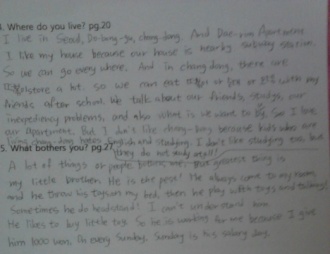 . Where do you live? pg.20
I live in Seoul, Do-bong-gu, chang dong. And Dae-rim Apartment
I like my house because our house is nearby subway station.
So we can go every where. And in chang dong, there are
store a lot. so we can eat or or with my
friends after school. We talk about our friends, studys, our
ingredimary problems, and also what is we want to So I love
our Apartment. But I don't like chang-dong because kids who are
living chang dong english and studying. I don't like studying too but
they do not study well!!
5. What bothers you? pg.27
A lot of things or people bothers me. most thing is
my little brother. He is the pest! He always come to my room
and he throw his toys on my bed, then he play with toys and talking!
Sometimes he do headstand! I can't understand him.
He likes to buy little toy. So he is working for me because I give
him 1000 won, in every Sunday. Sunday is his salary day.